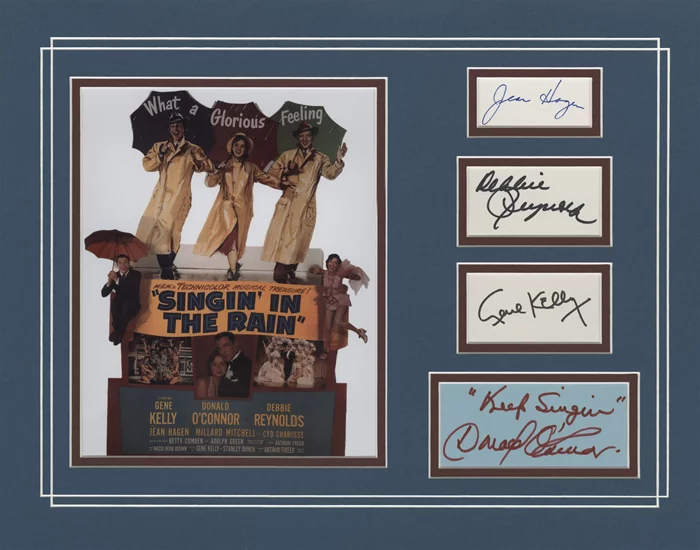 What a Glorious Feeling
M-G-M's TECHNICOLOR MUSICAL TREASURE!
"SINGIN' IN
THE RAIN"
GENE KELLY
DONALD O'CONNOR
DEBBIE REYNOLDS
JEAN HAGEN MILLARD MITCHELL CYD CHARISSE
BETTY COMDEN ADOLPH GREEN
ARTHUR FREED
NACIO HERB BROWN
GENE KELLY STANLEY DONEN
ARTHUR FREED
Jean Hagen
Debbie Reynolds
Gene Kelly
"Keep Singin"
Donald O'Connor